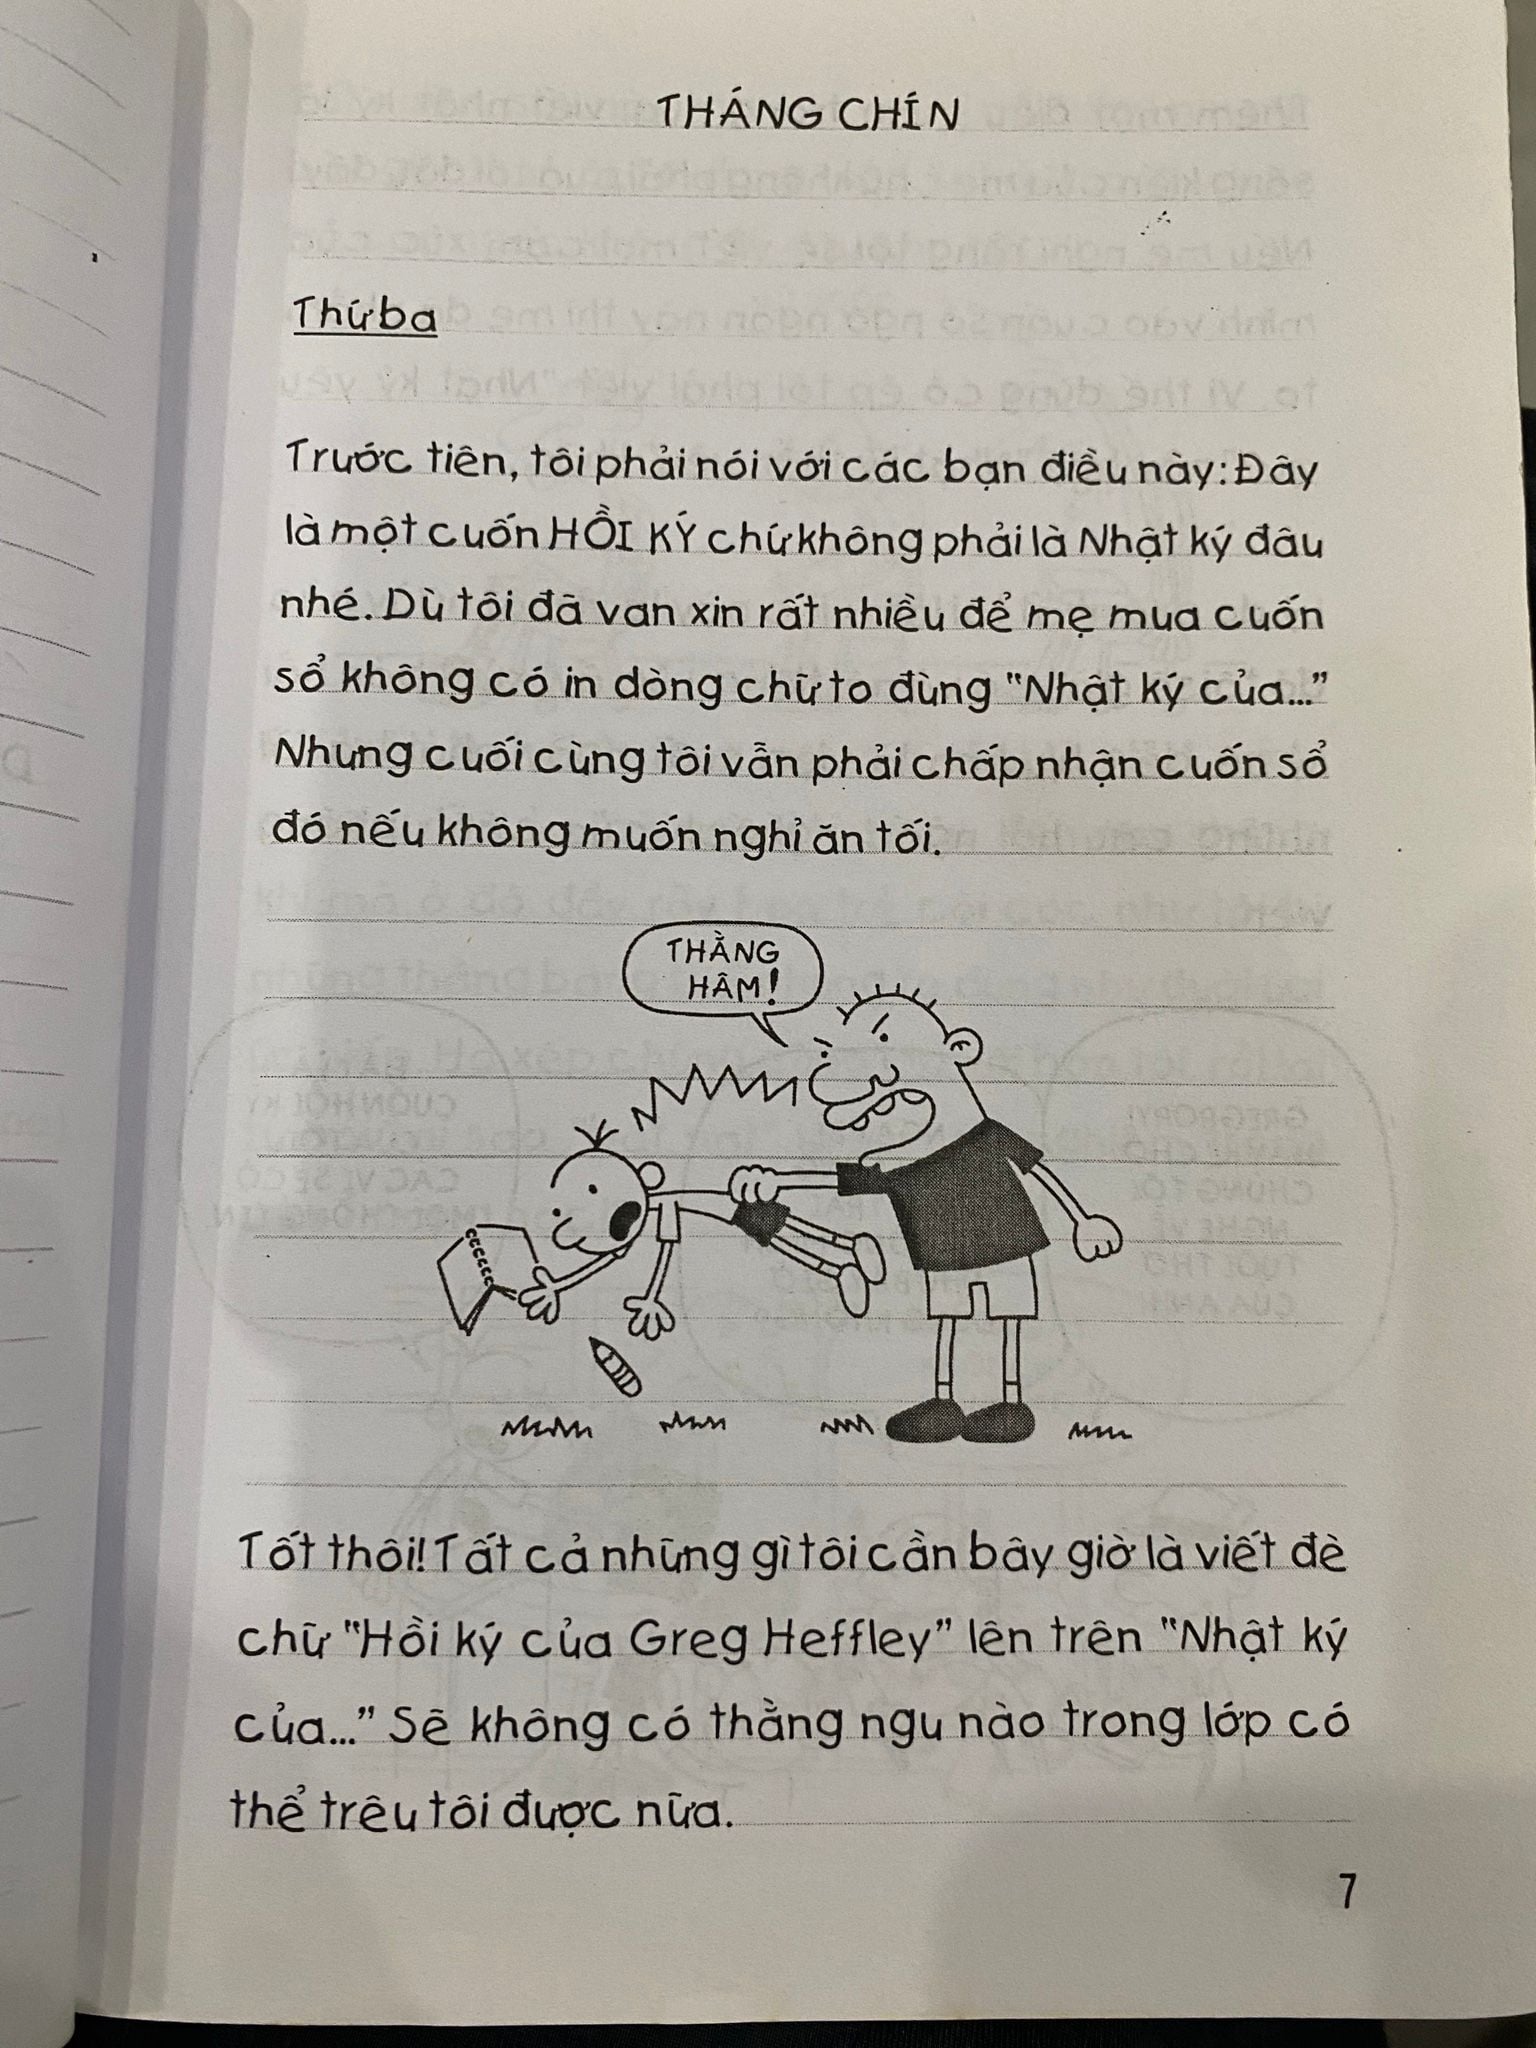 THÁNG CHÍN
Thứ ba
Trước tiên, tôi phải nói với các bạn điều này: Đây
là một cuốn HỒI KÝ chứ không phải là Nhật ký đâu
nhé. Dù tôi đã van xin rất nhiều để mẹ mua cuốn
sổ không có in dòng chữ to đùng “Nhật ký của...”
Nhưng cuối cùng tôi vẫn phải chấp nhận cuốn sổ
đó nếu không muốn nghỉ ăn tối.
THẰNG
HÂM!
Tốt thôi! Tất cả những gì tôi cần bây giờ là viết đè
chữ “Hồi ký của Greg Heffley” lên trên “Nhật ký
của...” Sẽ không có thằng ngu nào trong lớp có
thể trêu tôi được nữa.
7